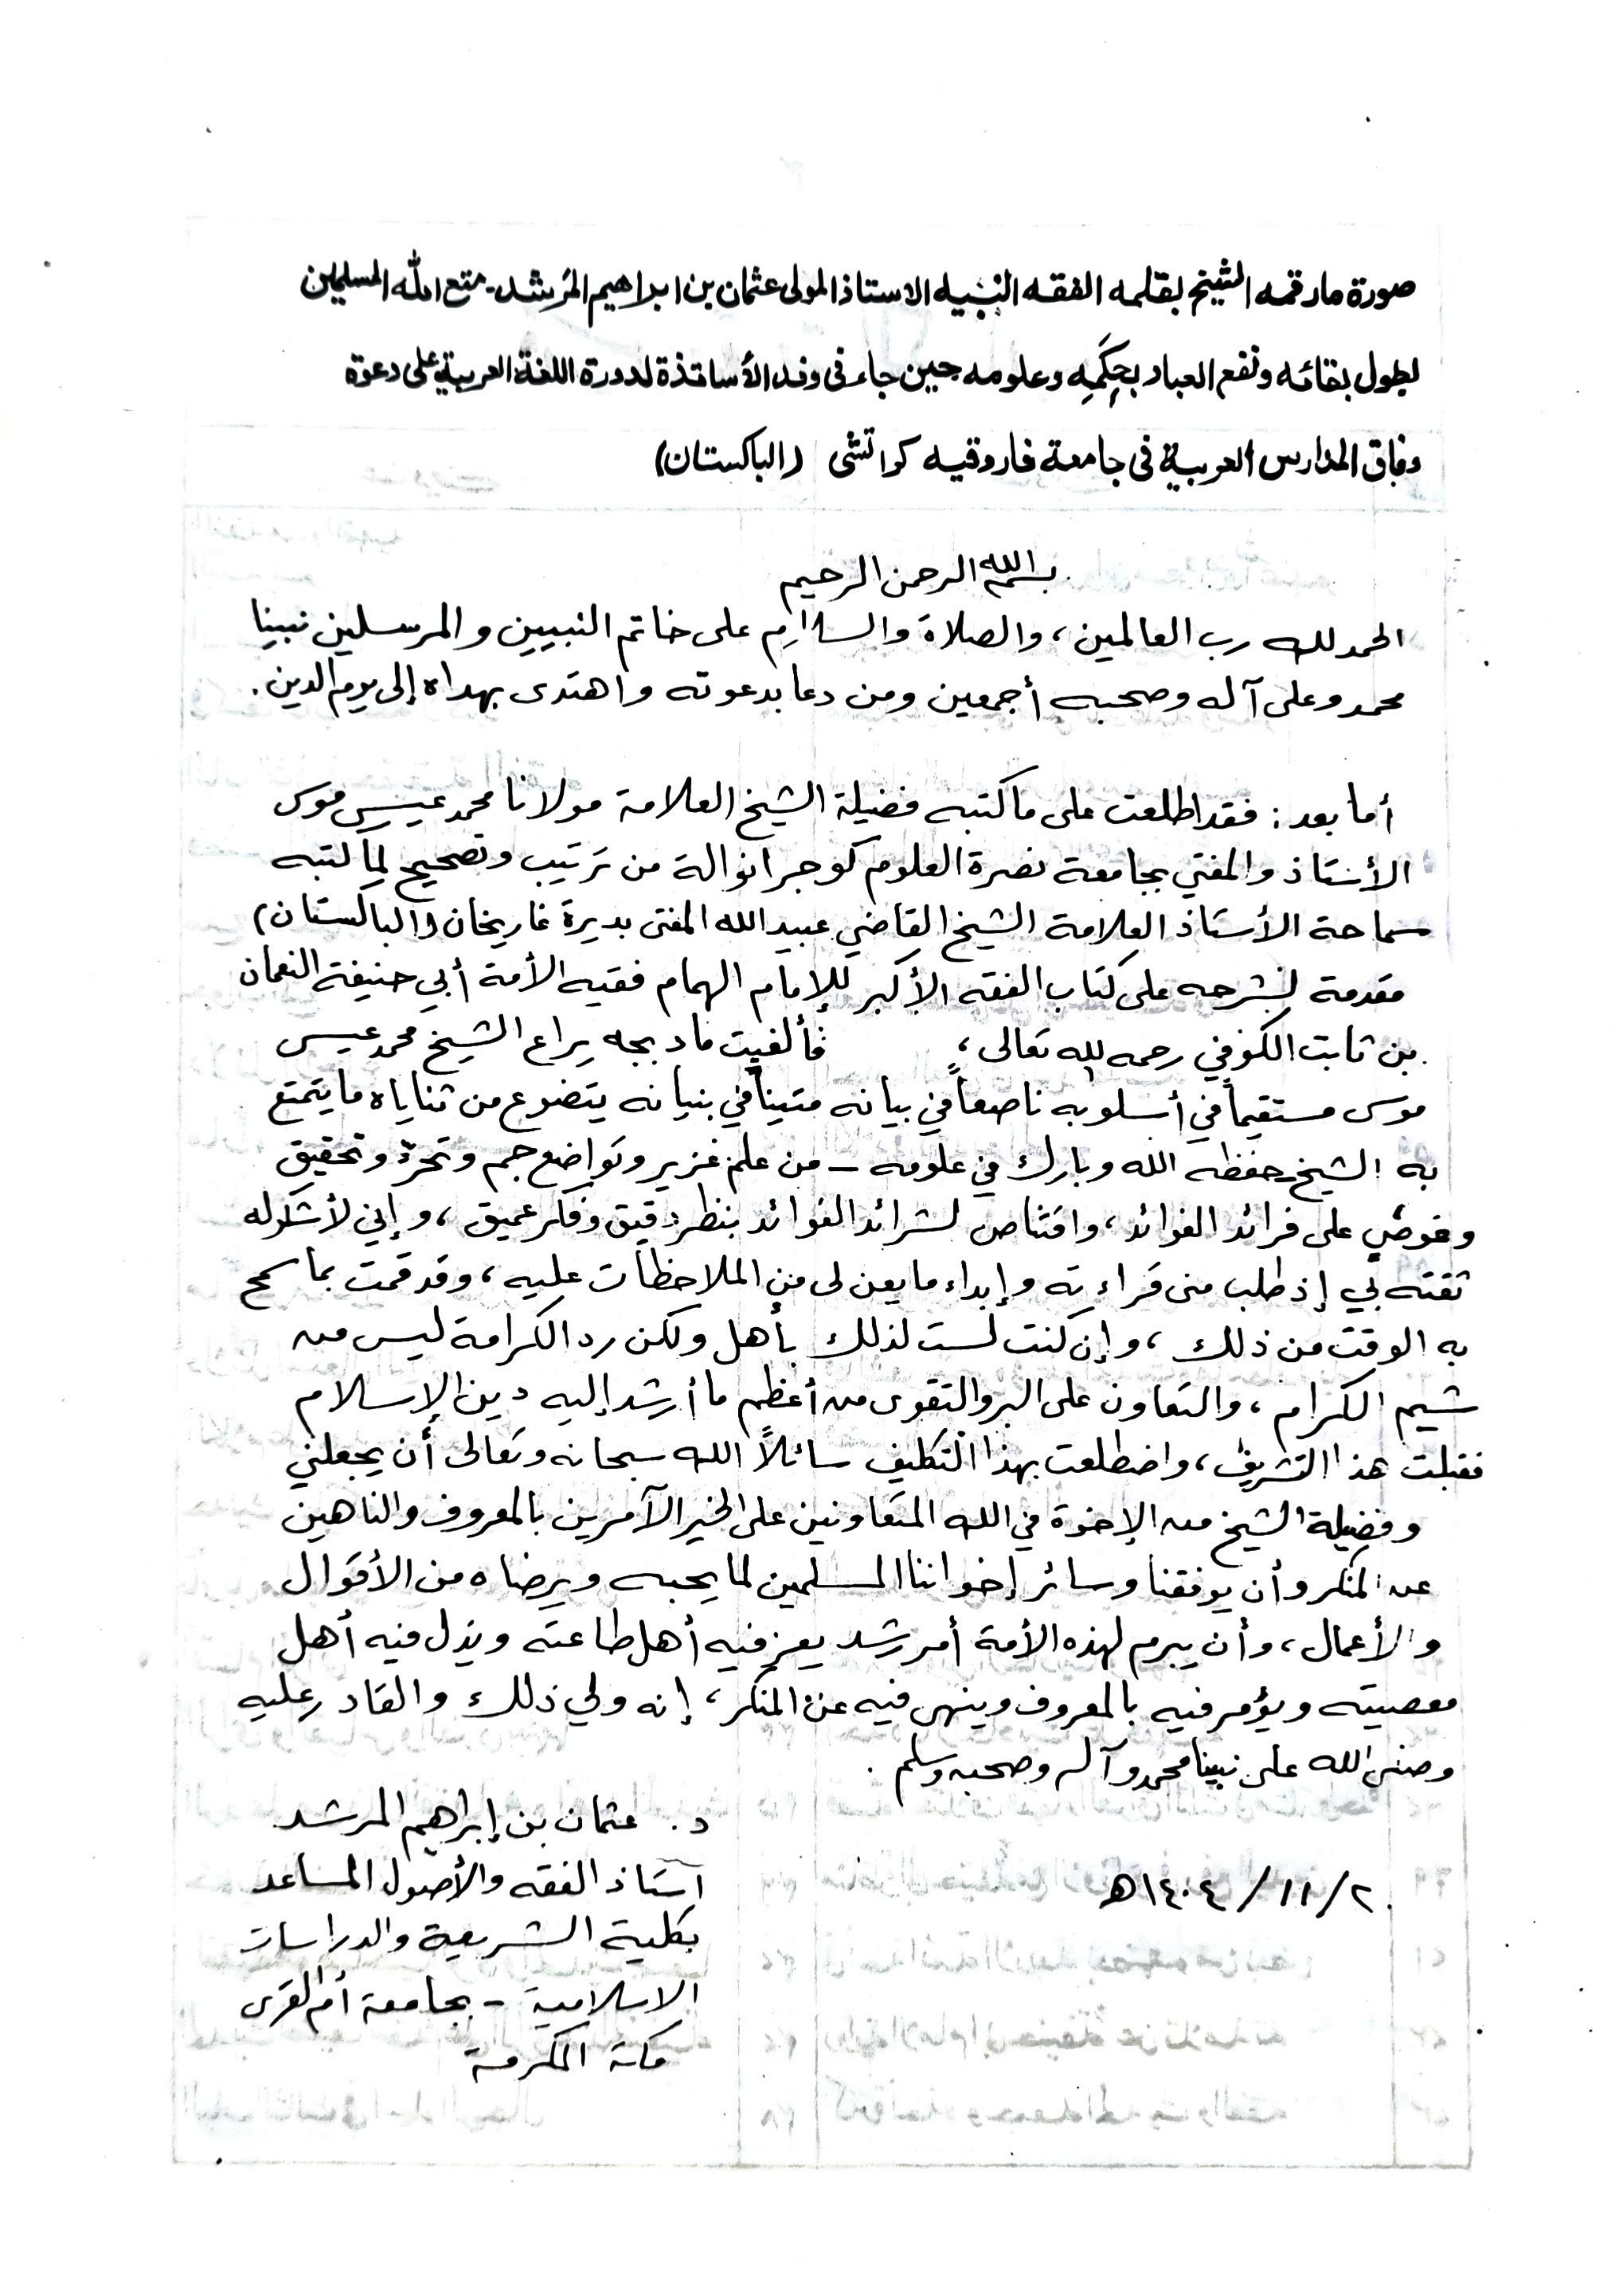 صورة ما رقمه الشيخ بقلمه الفقه النبيه الاستاذ المولى عثمان بن ابراهيم المرشد۔ متع الله المسلمين
بطول بقائه ونفع العباد بحِكَمِه وعلومه حين جاء فى وفد الأساتذة لدورة اللغة العربية على دعوة
وفاق المدارس العربية فى جامعة فاروقيه كراتشى (الباكستان)
بسم الله الرحمن الرحيم
الحمد لله رب العالمين، والصلاة والسلام على خاتم النبيين والمرسلين نبينا
محمد وعلى آله وصحبه أجمعين ومن دعا بدعوته واهتدى بهداه إلى يوم الدين.
أما بعد: فقد اطلعت على ما كتبه فضيلة الشيخ العلامة مولانا محمد عيسى موسى
الأستاذ والمفتي بجامعة نصرة العلوم كوجرانوالة من ترتيب وتصحيح لما كتبه
سماحة الأستاذ العلامة الشيخ القاضي عبيد الله المفتى بديرة غازيخان (الباكستان)
مقدمة لشرحه على كتاب الفقه الأكبر للإمام الهمام فقيه الأمة أبي حنيفة النعمان
بن ثابت الكوفي رحمه الله تعالى، فألفيت ما دبجه يراع الشيخ محمد عيسى
موسى مستقيماً في أسلوبه ناصعاً في بيانه متيناً في بنيانه يتضوع من ثناياه ما يتمتع
به الشيخ حفظه الله وبارك في علومه – من علم غزير وتواضع جم وتحرٍ وتحقيق
وغوص على فرائد الفوائد، واقتناص لشرائد الفوائد بنظر دقيق وفكر عميق، وإني لأشكر له
ثقته بي إذ طلب منى قراءته وإبداء ما يعن لى من الملاحظات عليه، وقد قمت بما سمح
به الوقت من ذلك، وإن كنت لست لذلك بأهل ولكن رد الكرامة ليس من
شيم الكرام، والتعاون على البر والتقوى من أعظم ما أرشد إليه دين الإسلام
فقبلت هذا التشريف، واضطلعت بهذا التكليف سائلاً الله سبحانه وتعالى أن يجعلني
وفضيلة الشيخ من الإخوة في الله المتعاونين على الخير الآمرين بالمعروف والناهين
عن المنكر وأن يوفقنا وسائر إخواننا المسلمين لما يحبه ويرضاه من الأقوال
والأعمال، وأن يبرم لهذه الأمة أمر رشد يعز فيه أهل طاعته ويذل فيه أهل
معصيته ويؤمر فيه بالمعروف وينهى فيه عن المنكر، إنه ولي ذلك والقادر عليه
وصلى الله على نبينا محمد وآله وصحبه وسلم.
د. عثمان بن إبراهيم المرشد
أستاذ الفقه والأصول المساعد
بكلية الشريعة والدراسات
الاسلامية – بجامعة أم القرى
مكة المكرمة
٢/١١/١٤٠٤هـ